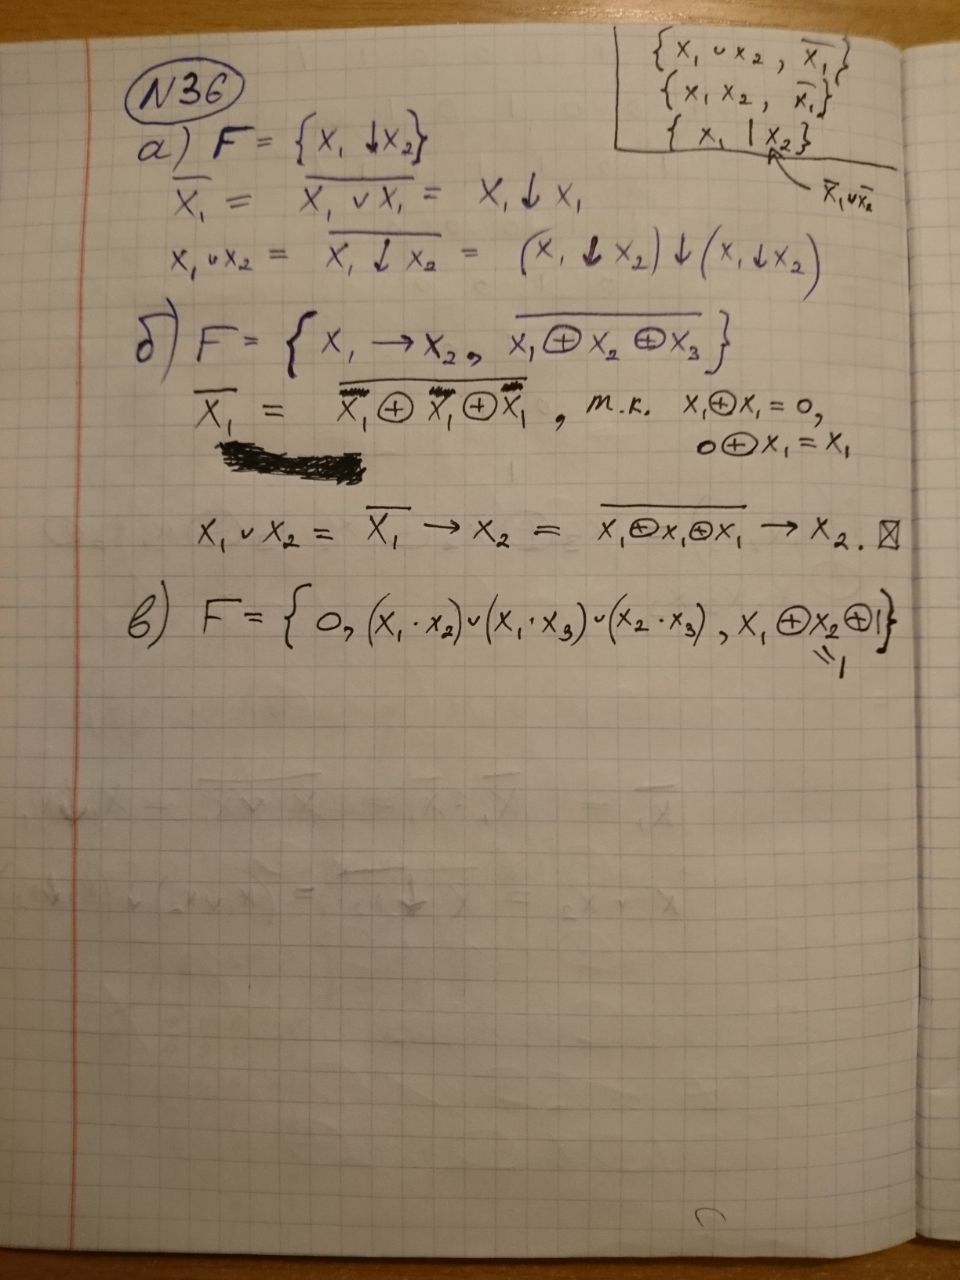 {x₁ ∨ x₂, x̅₁}
{x₁ x₂, x̅₁}
{x₁ | x₂}
x̅₁ ∨ x̅₂
N36
а) F = {x₁ ↓ x₂}
x̅₁ = \overline{x₁ ∨ x₁} = x₁ ↓ x₁
x₁ ∨ x₂ = \overline{x₁ ↓ x₂} = (x₁ ↓ x₂) ↓ (x₁ ↓ x₂)
б) F = {x₁ → x₂, \overline{x₁ ⊕ x₂ ⊕ x₃}}
x̅₁ = \overline{x₁ ⊕ x₁ ⊕ x₁}, т.к. x₁ ⊕ x₁ = 0,
0 ⊕ x₁ = x₁
x₁ ∨ x₂ = x̅₁ → x₂ = \overline{x₁ ⊕ x₁ ⊕ x₁} → x₂. ☒
в) F = {0, (x₁ · x₂) ∨ (x₁ · x₃) ∨ (x₂ · x₃), x₁ ⊕ x₂ ⊕ 1}
=1